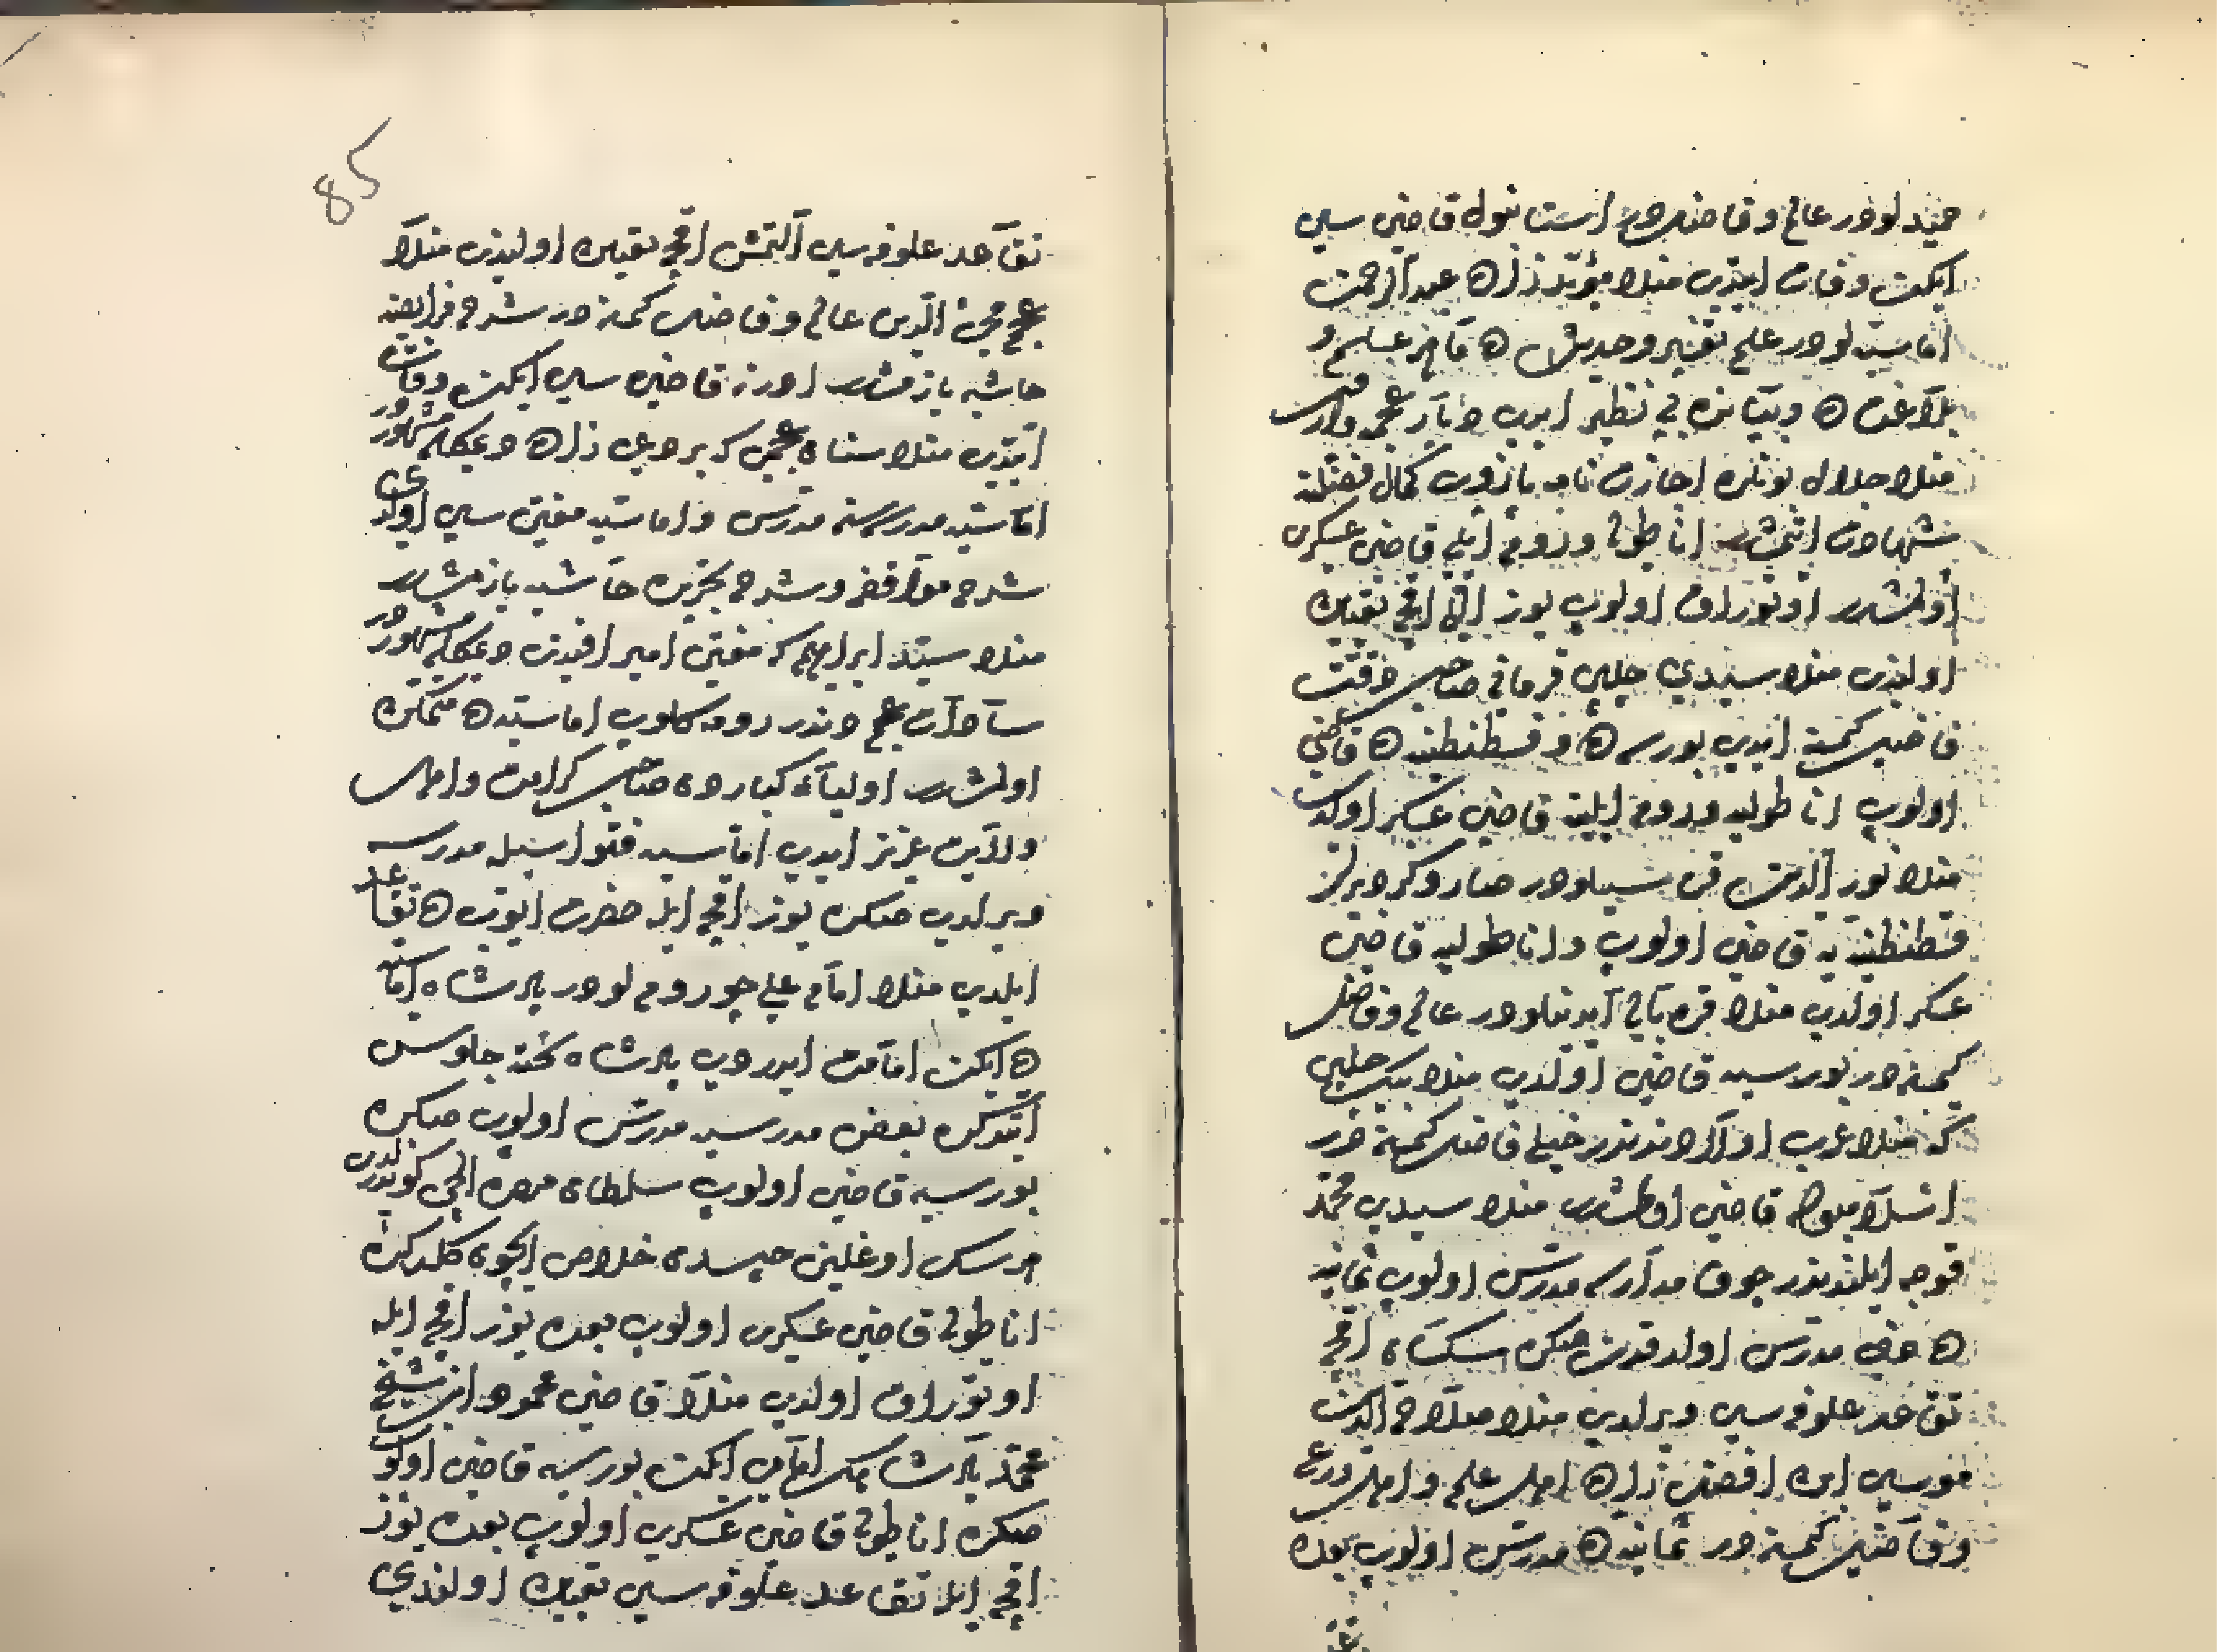 حميد لودر عالم و فاضلدر استانبول قاضی سی
ایکن وفات ایتدی منلا مؤید زاده عبد الرحمن
اماسیه لودر علم تفسیر وحدیثده ماهر علم و
بلاغتده بی نظیر ایدی دیار عجمه واروب
منلا جلال بونلره اجازت نامه یازوب کمال فضلنه
شهادت اتمشدر اناطولی وروم ایلی قاضی عسکری
اولمشدر اوتوراق اولوب یوز اللی اقچه تعیین
اولندی منلا سیدی چلبی قرمانی صاحب دقت
فاضل کمسنه ایدی بورسه ده و قسطنطنیه ده قاضی
اولوب اناطولیه وروم ایلینه قاضی عسکر اولدی
منلا نور الدین قره سیلودر صارو کرز دیرلر
قسطنطنیه یه قاضی اولوب و اناطولیه قاضی
عسکر اولدی منلا قره بالی آیدینلودر عالم وفاضل
کمسنه در بورسیه قاضی اولدی منلا چلبی
که منلا عرب اوغلی دیندر خیلی فاضل کمسنه در
قاضی اولمشدر منلا سیدی محمد
قوجه ایلندیندر چوق مدارسه مدرس اولوب ثمانیه
ده دخی مدرس اولدقدن صکره سکسان اقچه
تقاعد علوفه سی ویرلدی منلا صلاح الدین
موسی ابن افضل زاده اهل علم و اهل ورع
وفاضل کمسنه در ثمانیه ده مدرس اولوب بعده
تقاعد علوفه سی آلتمش اقچه تعیین اولندی منلا
عجم محیی الدین عالم و فاضل کمسنه در شرح فرایضه
حاشیه یازمشدر ادرنه قاضی سی ایکن وفات
ایتدی منلا سنان عجمی که بردعی زاده دیمکله مشهوردر
اماسیه مدرسه سنه مدرس و اماسیه مفتی سی اولدی
شرح مواقفه و شرح تجریده حاشیه یازمشدر
منلا سید ابراهیم که مفتی امیر افندی دیمکله مشهوردر
سادات عجم دندر رومه کلوب اماسیه ده متمکن
اولمشدر اولیاء کباردن صاحب کرامت و اهل
ولایت عزیز ایدی اماسیه فتواسیله مدرسه
ویرلدی صکره یوز اقچه ایله حضرت ایوبده تقاعد
ایلدی منلا امام علی چوروملودر پادشاه اماسیه
ده ایکن امامت ایدردی پادشاه تخته جلوس
ایتدکده بعض مدرسه مدرس اولوب صکره
بورسیه قاضی اولوب سلطان مصره ایلچی کوندردی
هرسک اوغلین حبسدن خلاص ایچون کلدکده
اناطولی قاضی عسکری اولوب بعده یوز اقچه ایله
اوتوراق اولدی منلا قاضی محمود ابن شیخ
محمد پادشاهک امامی ایکن بورسیه قاضی اولوب
صکره اناطولی قاضی عسکری اولوب بعده یوز
اقچه ایله تقاعد علوفه سی تعیین اولندی
85